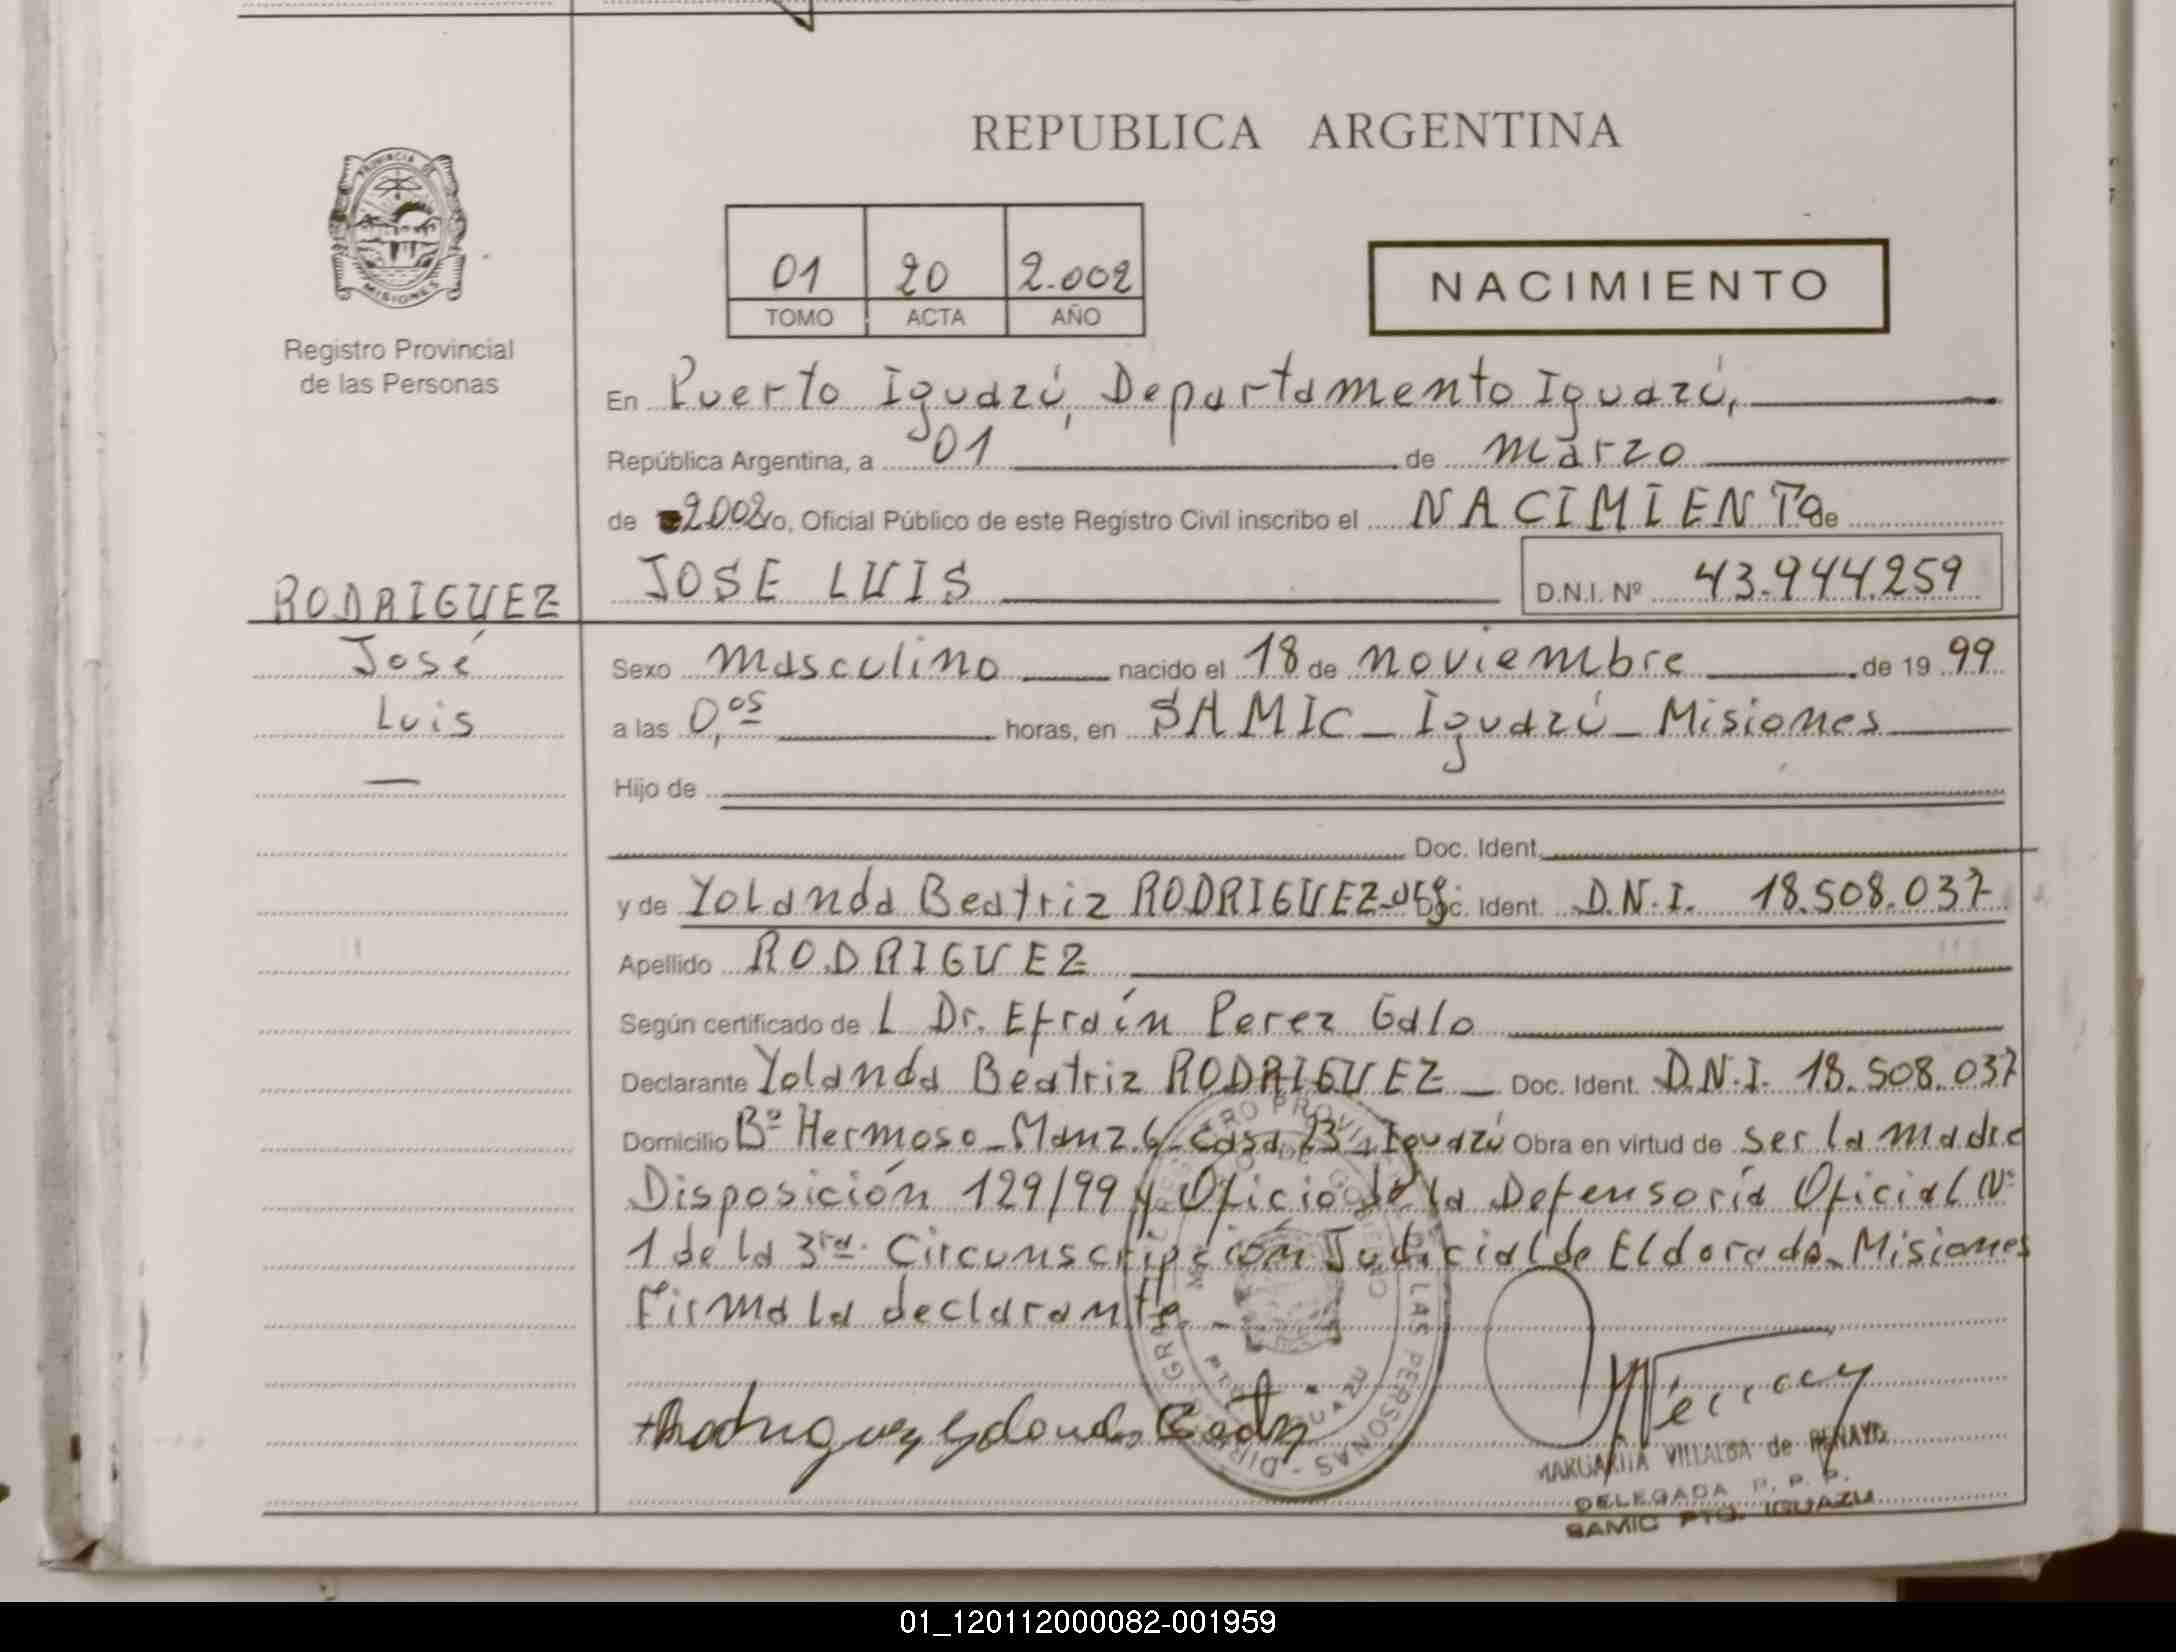 REPUBLICA ARGENTINA
PROVINCIA DE MISIONES
Registro Provincial
de las Personas
01 20 2.002
TOMO ACTA AÑO
NACIMIENTO
En Puerto Iguazú, Departamento Iguazú,
República Argentina, a 01 de marzo
de 2002 Yo, Oficial Público de este Registro Civil inscribo el NACIMIENTO de
JOSE LUIS D.N.I. Nº 43.944.259
RODRIGUEZ
José
Luis
Sexo masculino nacido el 18 de noviembre de 19 99
a las 0,05 horas, en SAMIC - Iguazú - Misiones
Hijo de
Doc. Ident.
y de Yolanda Beatriz RODRIGUEZ Doc. Ident. D.N.I. 18.508.037
Apellido RODRIGUEZ
Según certificado de L Dr. Efraín Perez Galo
Declarante Yolanda Beatriz RODRIGUEZ - Doc. Ident. D.N.I. 18.508.037
Domicilio Bº Hermoso - Manz. 6 - casa 23 - Iguazú Obra en virtud de ser la madre
Disposición 129/99 y Oficio de la Defensoría Oficial Nº
1 de la 3ra. Circunscripción Judicial de Eldorado - Misiones
Firma la declarante. -
Rodriguez Yolanda Beatriz
MARGARITA VILLALBA de PENAYO
DELEGADA R. P. P.
SAMIC PTO. IGUAZU
01_120112000082-001959